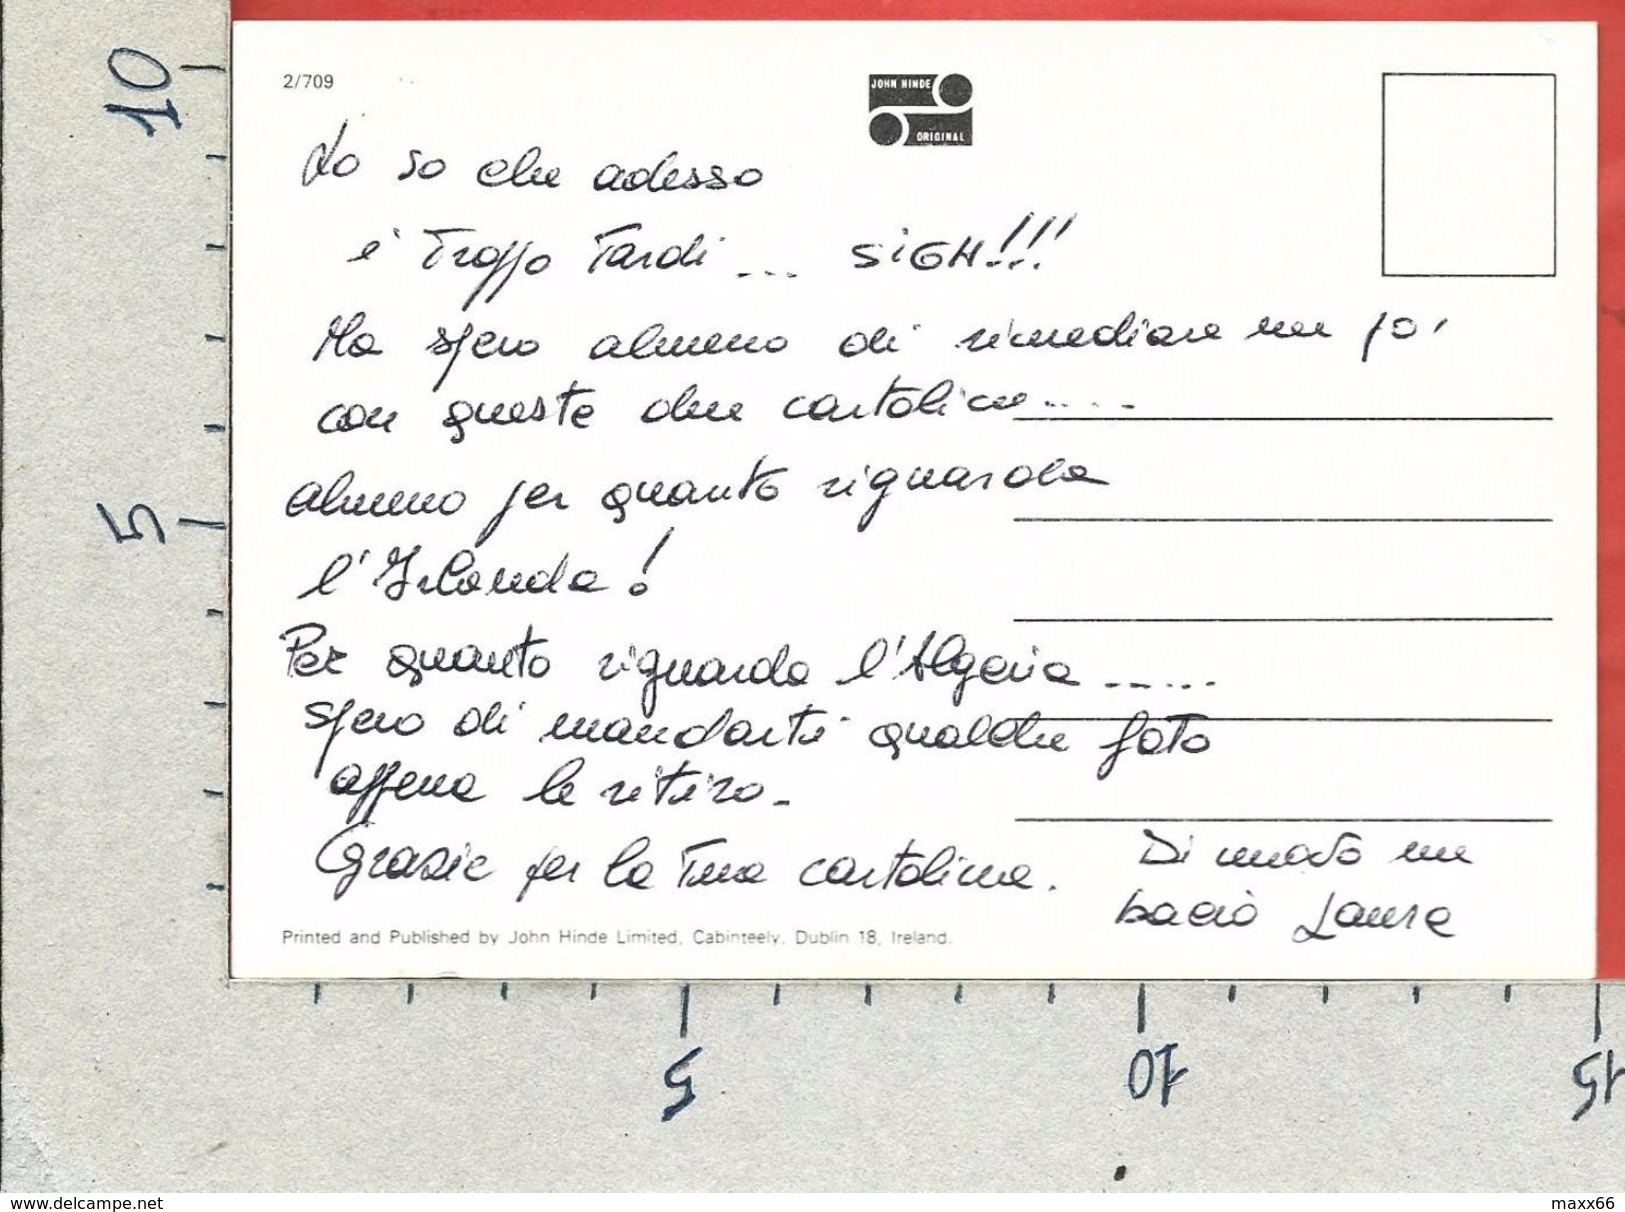 2/709
JOHN HINDE
ORIGINAL
Lo so che adesso
è troppo tardi ... SIGH!!!
Ma spero almeno di rimediare un po'
con queste due cartoline.....
almeno per quanto riguarda
l'Irlanda!
Per quanto riguarda l'Algeria ......
spero di mandarti qualche foto
appena le ritiro.
Grazie per la tua cartolina.
Di nuovo un
bacio Laura
Printed and Published by John Hinde Limited, Cabinteely, Dublin 18, Ireland.
10
5
5
10
15
www.delcampe.net
maxx66